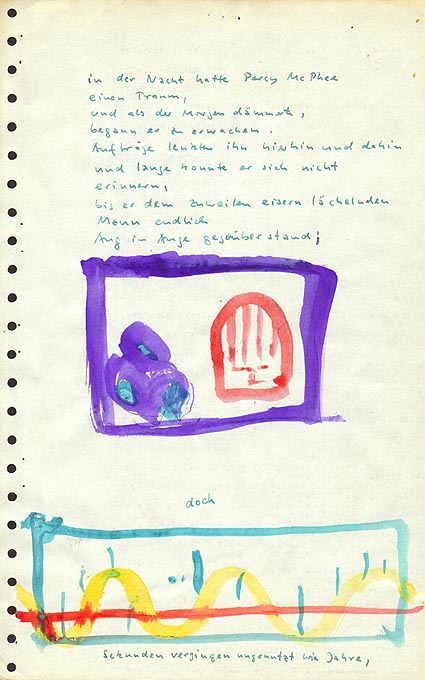 in der Nacht hatte Percy McPhee
einen Traum,
und als der Morgen dämmerte,
begann er zu erwachen.
Aufträge lenkten ihn hierhin und dahin
und lange konnte er sich nicht
erinnern,
bis er dem zuweilen eisern lächelnden
Mann endlich
Aug in Auge gegenüberstand;
doch
Sekunden vergingen ungenutzt wie Jahre,